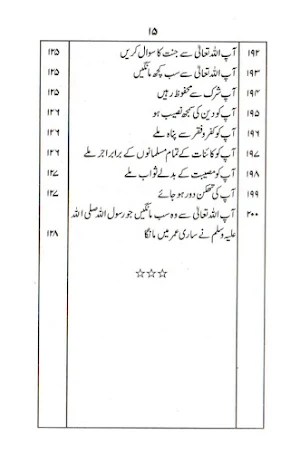 ۱۵
۱۹۲ آپ اللہ تعالیٰ سے جنت کا سوال کریں ۱۲۵
۱۹۳ آپ اللہ تعالیٰ سے سب کچھ مانگیں ۱۲۵
۱۹۴ آپ شرک سے محفوظ رہیں ۱۲۵
۱۹۵ آپ کو دین کی سمجھ نصیب ہو ۱۲۶
۱۹۶ آپ کو کفر و فقر سے پناہ ملے ۱۲۶
۱۹۷ آپ کو کائنات کے تمام مسلمانوں کے برابر اجر ملے ۱۲۶
۱۹۸ آپ کو مصیبت کے بدلے ثواب ملے ۱۲۷
۱۹۹ آپ کی تھکن دور ہو جائے ۱۲۷
۲۰۰ آپ اللہ تعالیٰ سے وہ سب مانگیں جو رسول اللہ صلی اللہ
علیہ وسلم نے ساری عمر میں مانگا ۱۲۸
☆☆☆